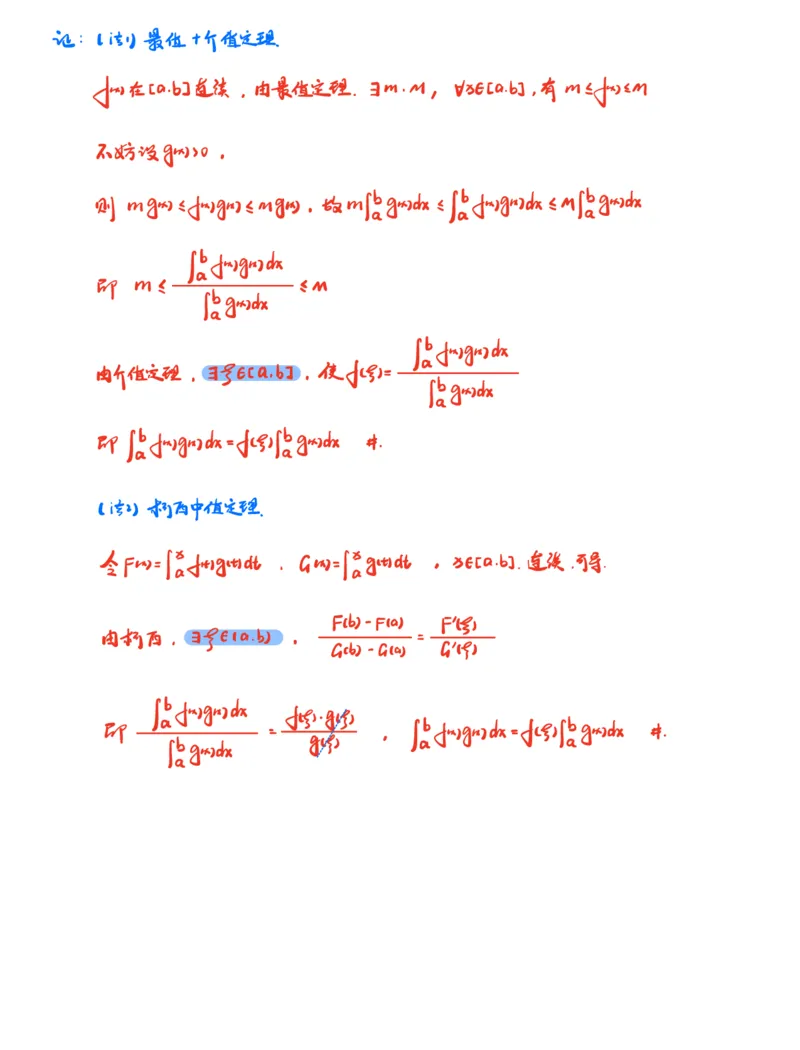 证:(法1) 最值+介值定理.
f(x)在[a.b]连续,由最值定理.∃m.M, ∀x∈[a.b],有 m≤f(x)≤M
不妨设g(x)>0,
则 mg(x)≤f(x)g(x)≤Mg(x),故m∫_a^b g(x)dx≤∫_a^b f(x)g(x)dx≤M∫_a^b g(x)dx
即 m≤ ∫_a^b f(x)g(x)dx / ∫_a^b g(x)dx ≤M
由介值定理,∃ξ∈[a.b],使f(ξ)= ∫_a^b f(x)g(x)dx / ∫_a^b g(x)dx
即 ∫_a^b f(x)g(x)dx=f(ξ)∫_a^b g(x)dx #.
(法2) 柯西中值定理.
令F(x)=∫_a^x f(t)g(t)dt . G(x)=∫_a^x g(t)dt , x∈[a.b].连续.可导.
由柯西,∃ξ∈(a.b), F(b)-F(a) / G(b)-G(a) = F'(ξ) / G'(ξ)
即 ∫_a^b f(x)g(x)dx / ∫_a^b g(x)dx = f(ξ)·g(ξ) / g(ξ) , ∫_a^b f(x)g(x)dx=f(ξ)∫_a^b g(x)dx #.